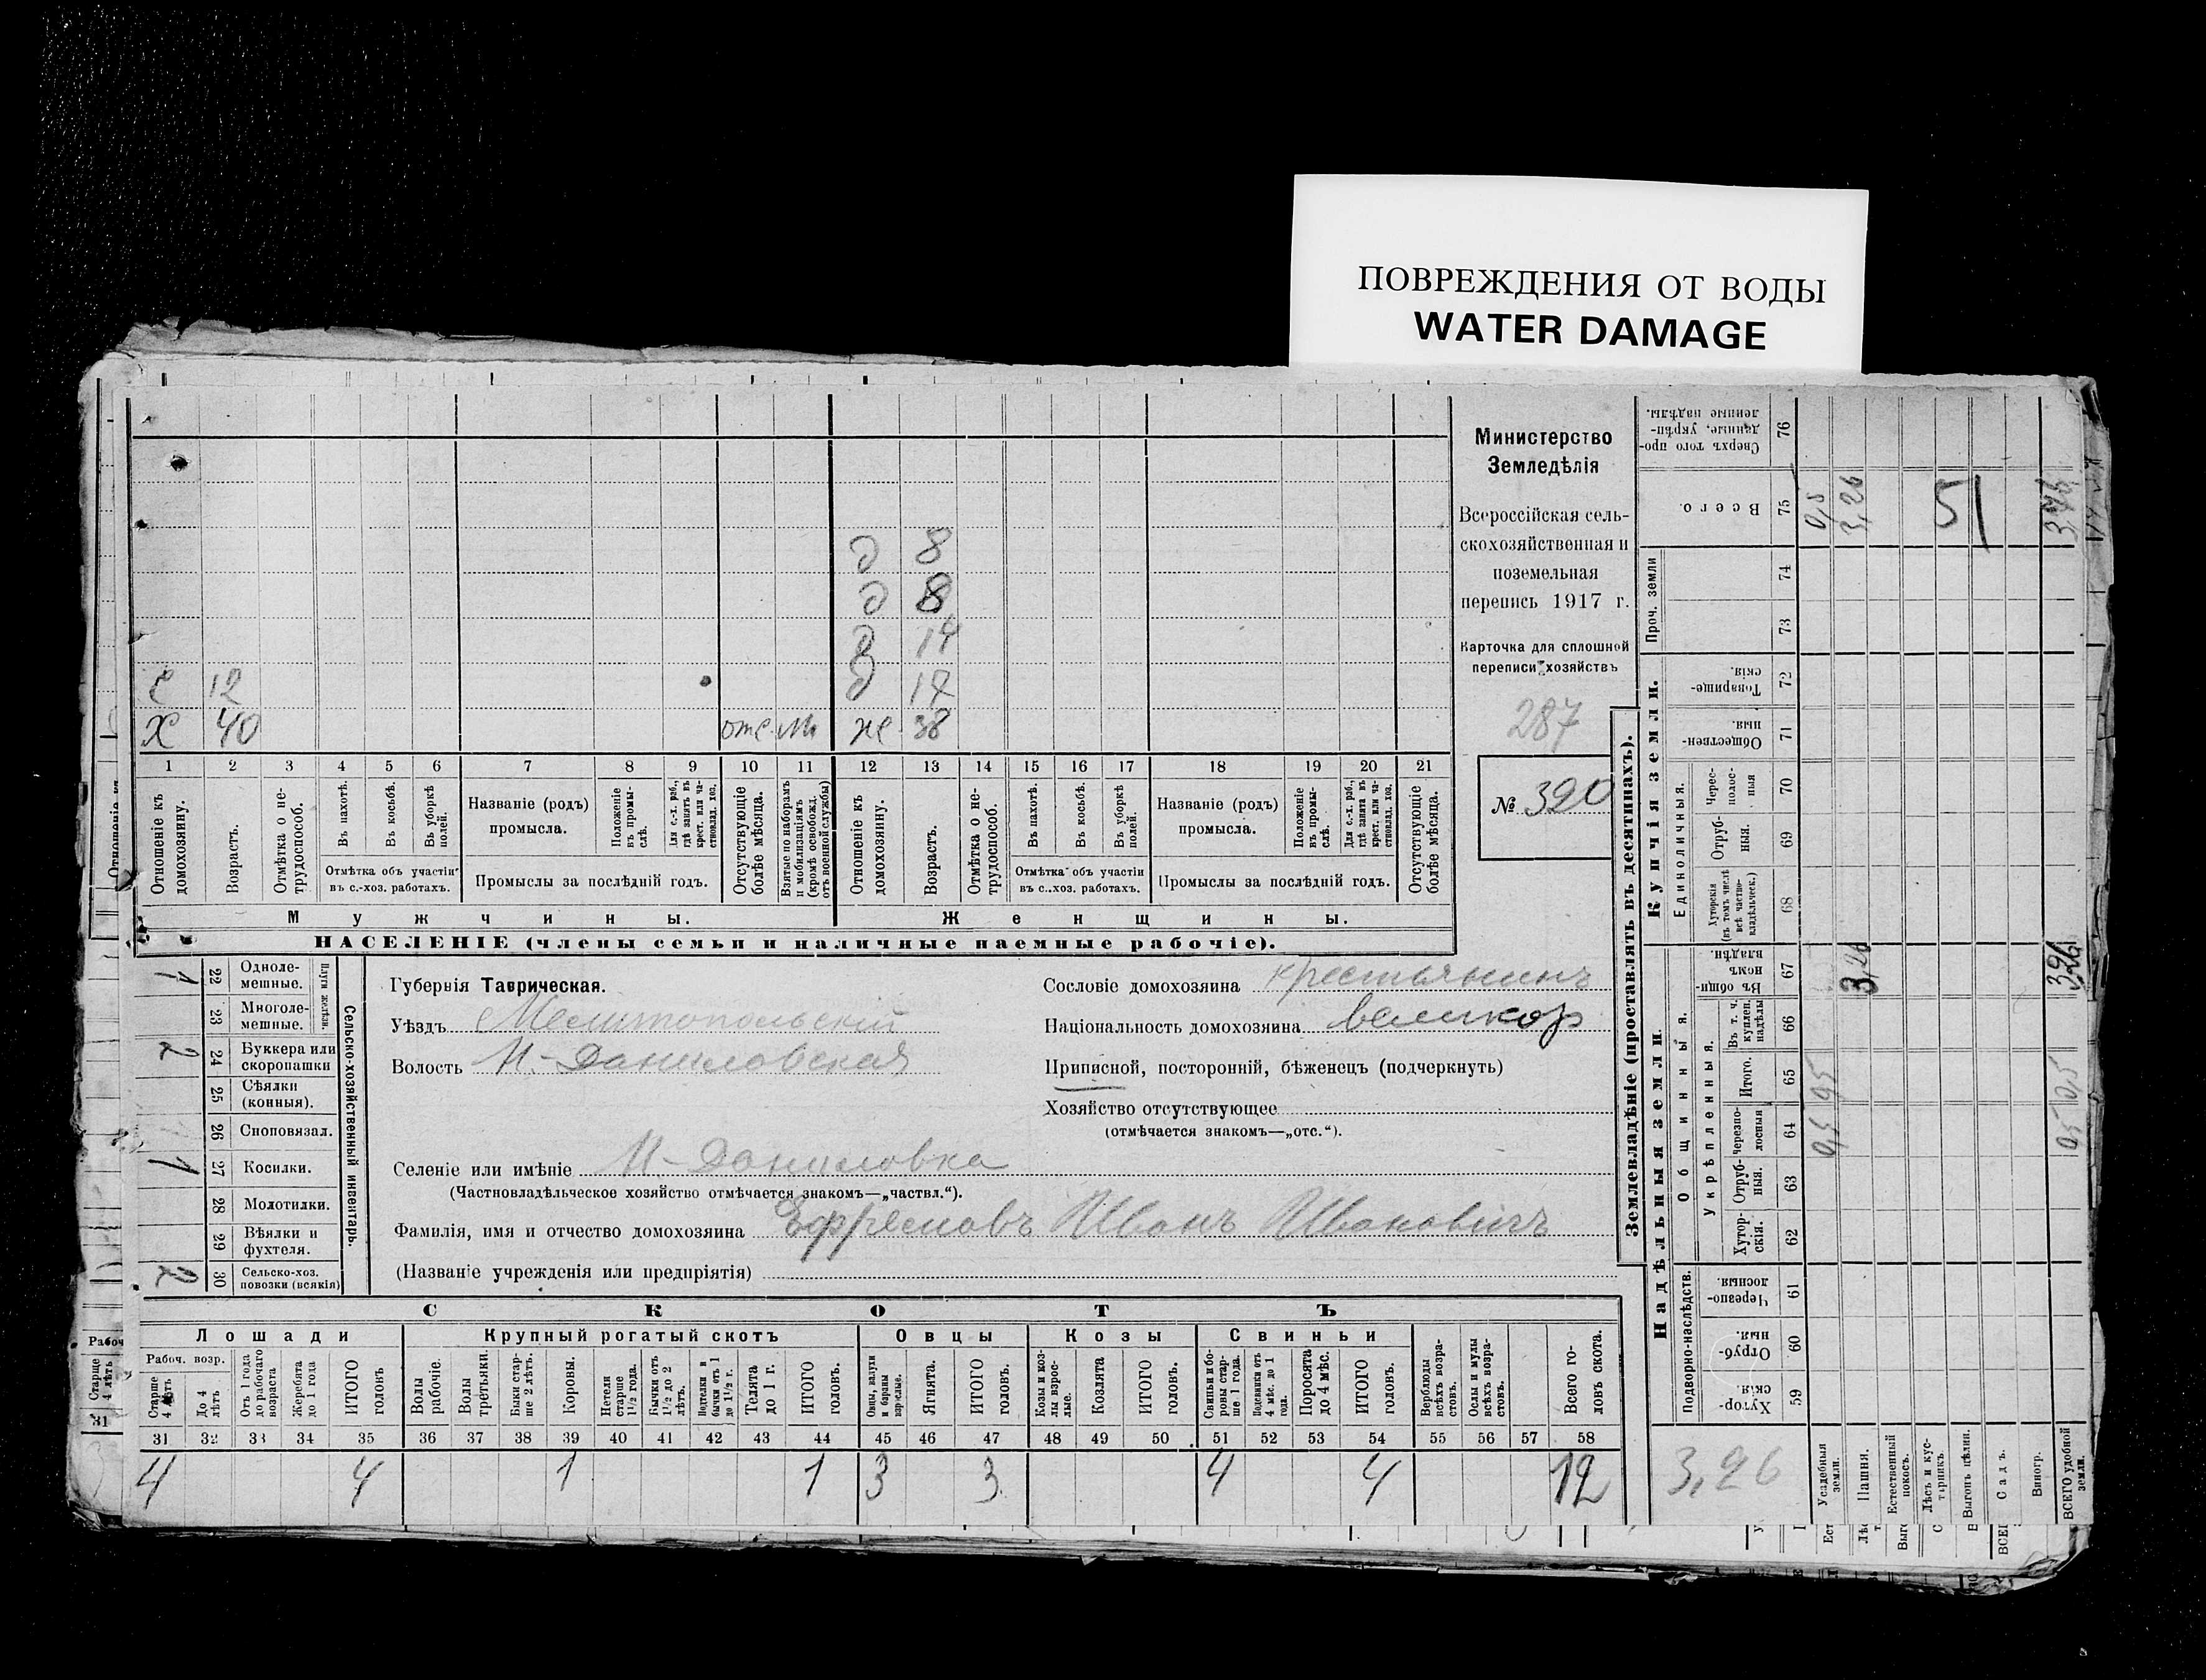 ПОВРЕЖДЕНИЯ ОТ ВОДЫ
WATER DAMAGE
Министерство
Земледѣлія
Всероссійская сель-
скохозяйственная и
поземельная
перепись 1917 г.
Карточка для сплошной
переписи хозяйствъ
287
№ 390
д 8
д 8
д 14
с 12 д 17
х 40 отс. м же 38
1 2 3 4 5 6 7 8 9 10 11 12 13 14 15 16 17 18 19 20 21
Отношеніе къ домохозяину.
Возрастъ.
Отмѣтка о не-трудоспособ.
Въ пахотѣ.
Въ косьбѣ.
Въ уборкѣ полей.
Отмѣтка объ участіи
въ с.-хоз. работахъ.
Названіе (родъ)
промысла.
Положеніе въ промы-слѣ.
Для с.-х. раб., гдѣ занятъ въ крест. или ча-стновлад. хоз.
Промыслы за послѣдній годъ.
Отсутствующіе болѣе мѣсяца.
Взятые по наборамъ и мобилизаціямъ (кромѣ освобожд. отъ военной службы)
Отношеніе къ домохозяину.
Возрастъ.
Отмѣтка о не-трудоспособ.
Въ пахотѣ.
Въ косьбѣ.
Въ уборкѣ полей.
Отмѣтка объ участіи
въ с.-хоз. работахъ.
Названіе (родъ)
промысла.
Положеніе въ промы-слѣ.
Для с.-х. раб., гдѣ занята въ крест. или ча-стновлад. хоз.
Промыслы за послѣдній годъ.
Отсутствующіе болѣе мѣсяца.
Мужчины. Женщины.
НАСЕЛЕНІЕ (члены семьи и наличные наемные рабочіе).
Сельско-хозяйственный инвентарь.
Плуги желѣзн.
1 22 Одноле-мешные.
23 Многоле-мешные.
2 24 Буккера или скоропашки
25 Сѣялки (конныя).
26 Сноповязал.
1 27 Косилки.
28 Молотилки.
29 Вѣялки и фухтеля.
2 30 Сельско-хоз. повозки (всякія)
Губернія Таврическая.
Уѣздъ Мелитопольскій
Волость Н-Даниловская
Селеніе или имѣніе Н-Даниловка
(Частновладѣльческое хозяйство отмѣчается знакомъ—„частвл.“).
Фамилія, имя и отчество домохозяина Ефремовъ Иванъ Ивановичъ
(Названіе учрежденія или предпріятія)
Сословіе домохозяина крестьянинъ
Національность домохозяина великор
Приписной, посторонній, бѣженецъ (подчеркнуть)
Хозяйство отсутствующее
(отмѣчается знакомъ—„отс.“).
СКОТЪ
Лошади Крупный рогатый скотъ Овцы Козы Свиньи
Рабоч. возр.
Старше 4 лѣтъ
До 4 лѣтъ
Отъ 1 года до рабочаго возраста
Жеребята до 1 года
ИТОГО головъ
Волы рабочіе.
Волы третьяки.
Быки стар-ше 2 лѣтъ.
Коровы.
Нетели старше 1½ года.
Бычки отъ 1½ до 2 лѣтъ.
Подтелки и бычки отъ 1 до 1½ г.
Телята до 1 г.
ИТОГО головъ.
Овцы, валухи и бараны взрослые.
Ягнята.
ИТОГО головъ.
Козы и коз-лы взрос-лые.
Козлята
ИТОГО головъ.
Свиньи и бо-ровы стар-ше 1 года.
Подсвинки отъ 4 мѣс. до 1 года.
Поросята до 4 мѣс.
ИТОГО головъ.
Верблюды всѣхъ возра-стовъ.
Ослы и мулы всѣхъ возра-стовъ.
Всего го-ловъ скота.
31 32 33 34 35 36 37 38 39 40 41 42 43 44 45 46 47 48 49 50 51 52 53 54 55 56 57 58
4 4 1 1 3 3 4 4 12
Землевладѣніе (проставлять въ десятинахъ).
Надѣльныя земли. Купчія земли. Проч. земли
Подворно-наслѣдств. Общинныя. Укрѣпленныя. Единоличныя.
Хутор-скія. 59
Отруб-ныя. 60
Черезпо-лосныя. 61
Хутор-скія. 62
Отруб-ныя. 63
Черезпо-лосныя 64 0,5
Итого. 65 0,5
Въ т. ч. куплен. надѣлы 66
Въ общин-номъ владѣн. 67 3,26
Хуторскія (въ томъ числѣ всѣ частно-владѣльческ.) 68
Отруб-ныя. 69
Черес-полос-ныя 70
Обществен-ныя. 71
Товарище-скія. 72
73
74
Всего. 75 0,5 3,26 51
Сверхъ того про-данные, укрѣп-ленные надѣлы. 76
3,26
Усадебныя земли.
Пашня.
Естественный покосъ.
Лѣсъ и кус-тарникъ.
Выгонъ цѣлин.
Садъ.
Виногр.
ВСЕГО удобной земли.